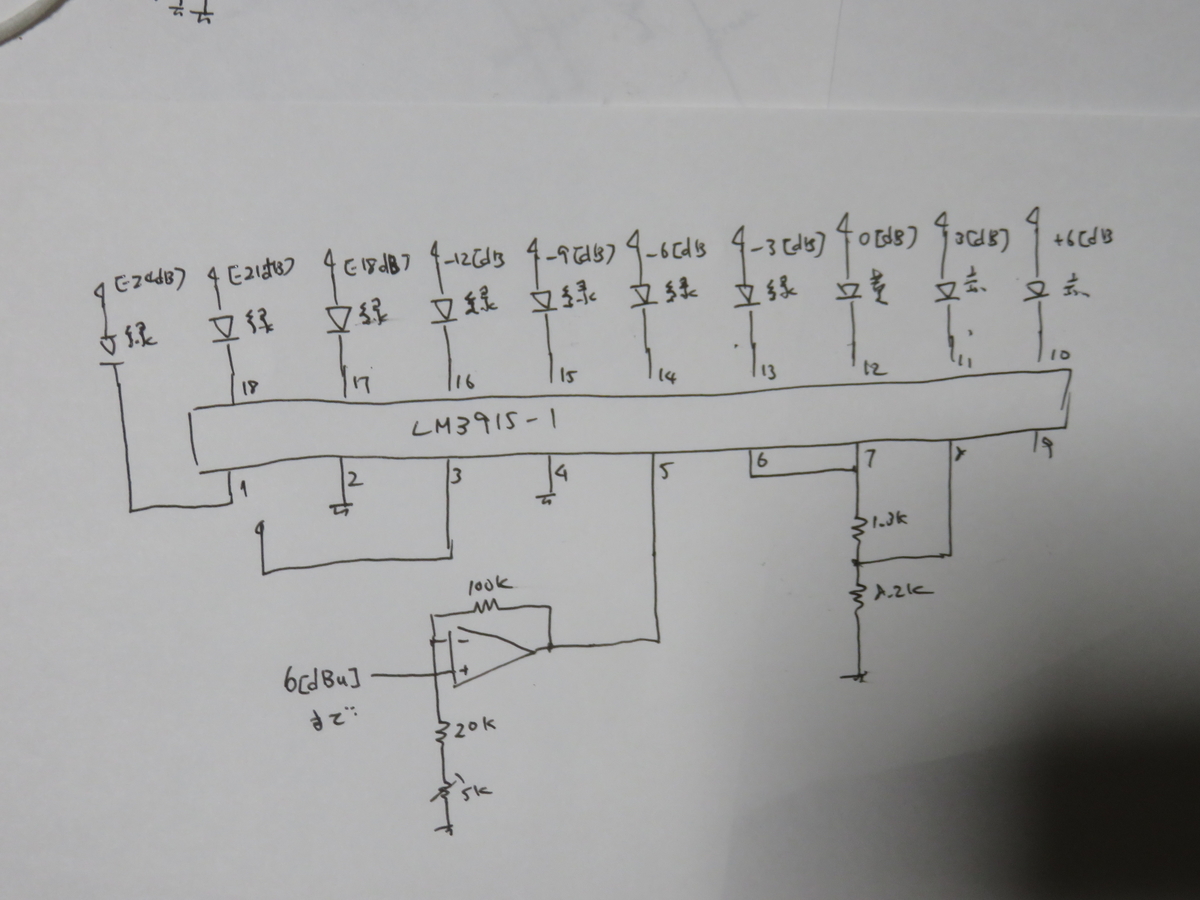 [-24dB]
[-21dB]
[-18dB]
-12[dB
-9[dB]
-6[dB
-3[dB]
0[dB]
3[dB]
+6[dB
緑
緑
緑
緑
緑
緑
緑
黄
赤
赤
18
17
16
15
14
13
12
11
10
LM3915-1
1
2
3
4
5
6
7
8
9
1.3K
8.2K
100K
-
+
6[dBu]
まで
20K
5K